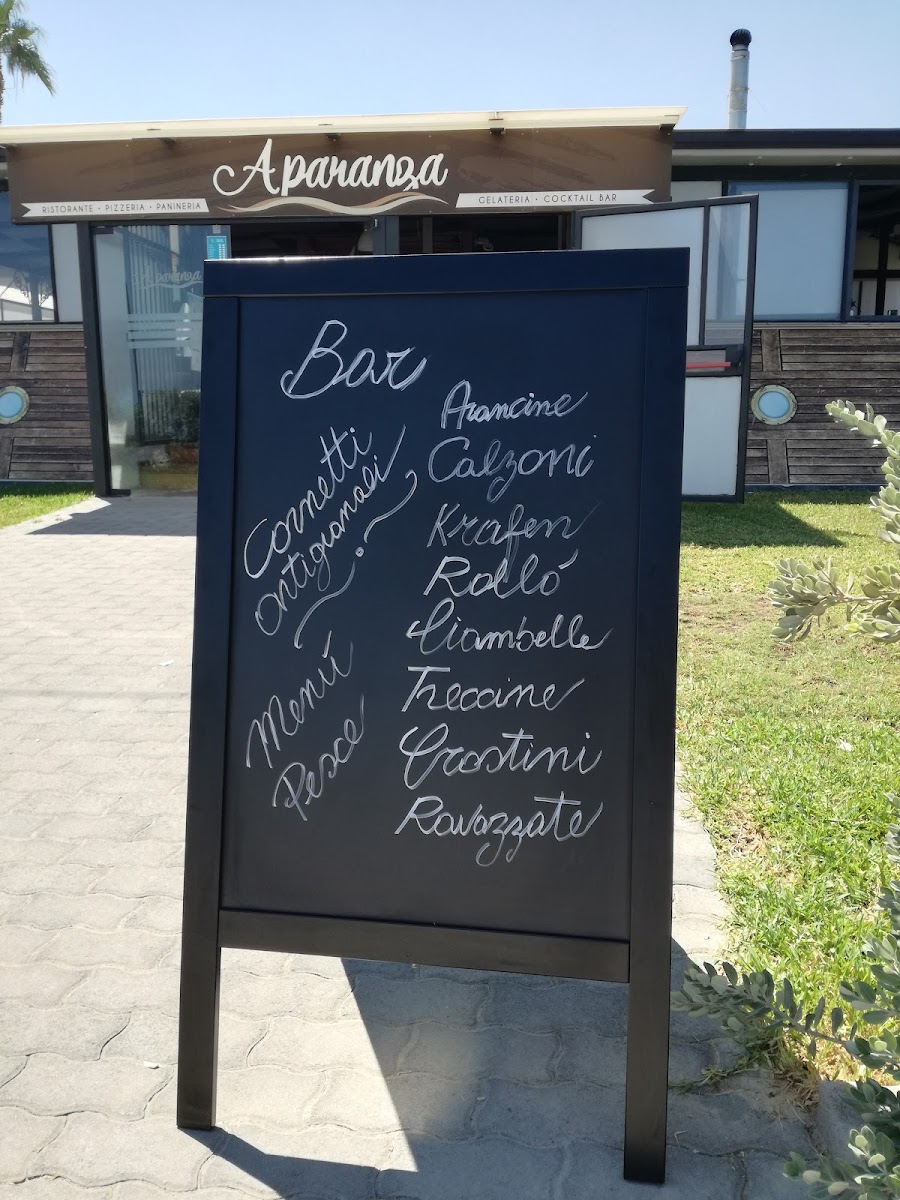 Aparanza
RISTORANTE • PIZZERIA • PANINERIA
GELATERIA • COCKTAIL BAR
Aparanza
Bar
Cornetti
artigianali
Menù
Pesce
Arancine
Calzoni
Krafen
Rollò
Ciambelle
Treccine
Crostini
Ravazzate